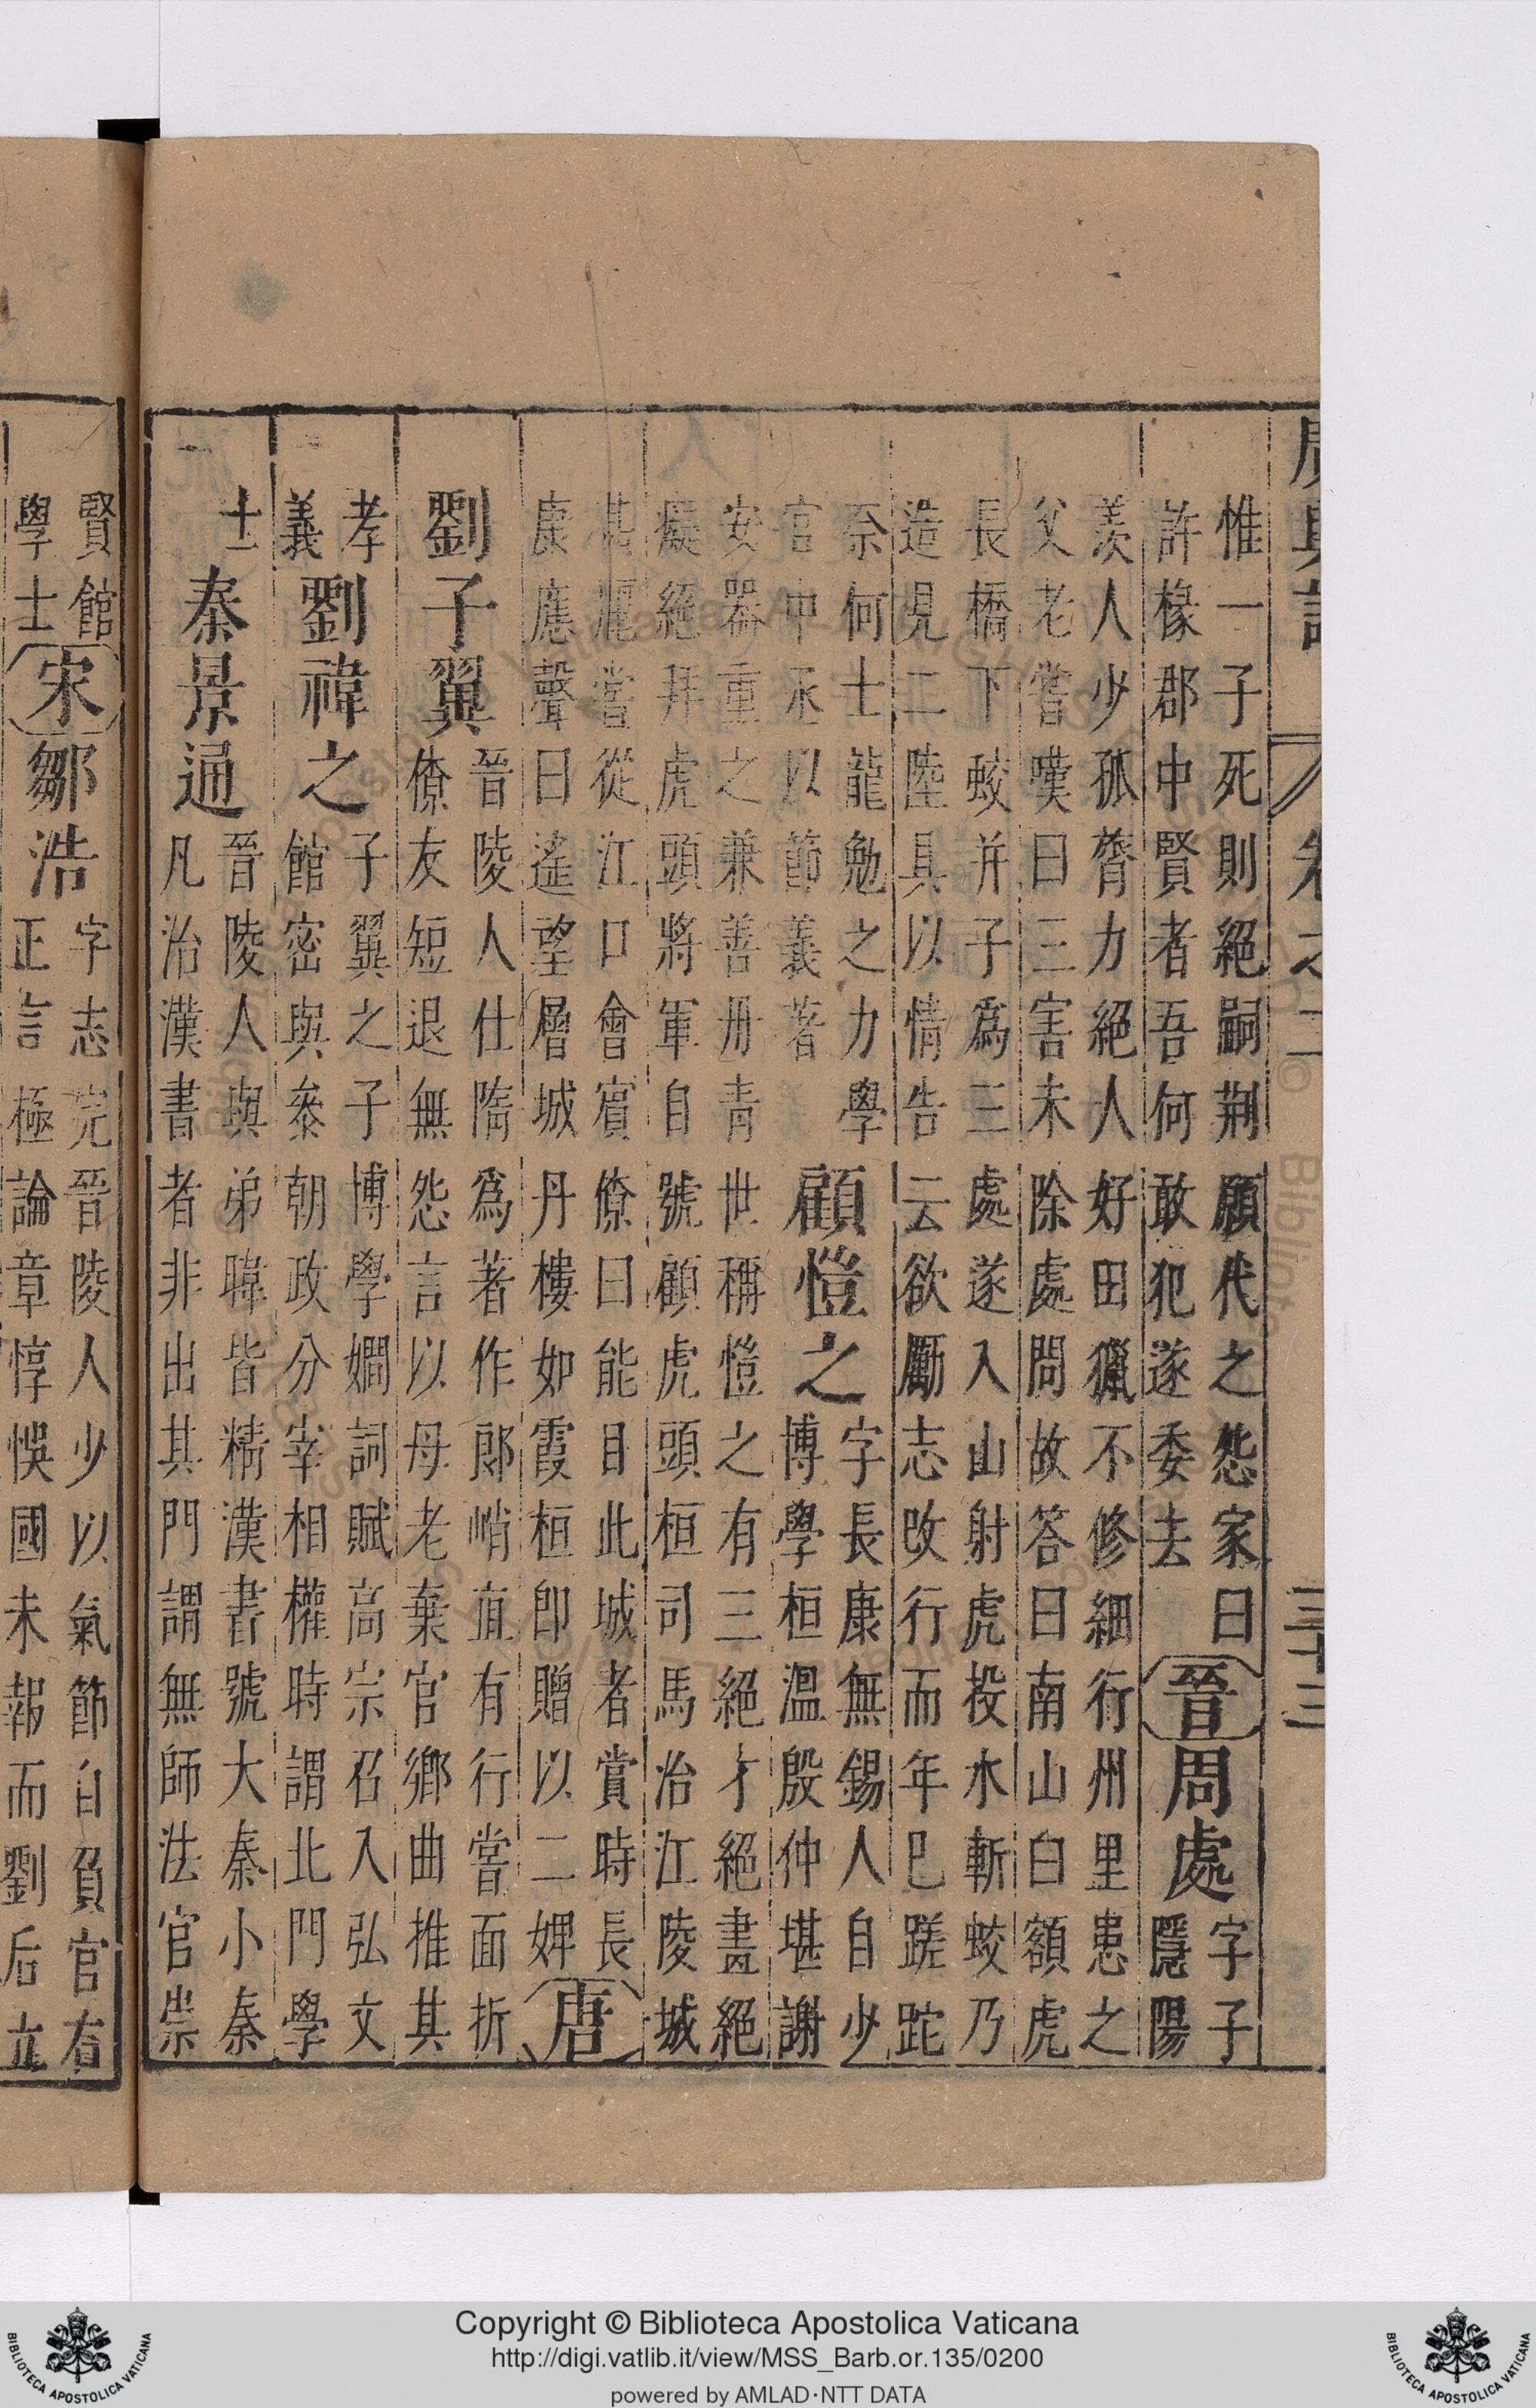 廣輿記 卷之二 三十三
惟一子死則絕嗣荆願代之怨家曰
許椽郡中賢者吾何敢犯遂委去
晉
周處
字子
隱陽
羨人少孤膂力絕人好田獵不修細行州里患之
父老嘗嘆曰三害未除處問故答曰南山白額虎
長橋下蛟并子爲三處遂入山射虎投水斬蛟乃
造見二陸具以情告云欲勵志改行而年已蹉跎
奈何士龍勉之力學
官中丞以節義著
顧愷之
字長康無錫人自少
博學桓溫殷仲堪謝
安器重之兼善丹青世稱愷之有三絕才絕畫絕
癡絕拜虎頭將軍自號顧虎頭桓司馬治江陵城
甚麗嘗從江口會賓僚曰能目此城者賞時長
康應聲曰遙望層城丹樓如霞桓卽贈以二婢
唐
劉子翼
晉陵人仕隋爲著作郎峭直有行嘗面折
僚友短退無怨言以母老棄官鄉曲推其
孝
義
劉禕之
子翼之子博學嫺詞賦高宗召入弘文
館密與叅朝政分宰相權時謂北門學
士
秦景通
晉陵人與弟暐皆精漢書號大秦小秦
凡治漢書者非出其門謂無師法官崇
賢館
學士
宋
鄒浩
字志完晉陵人少以氣節自負官右
正言極論章惇悞國未報而劉后立
Copyright © Biblioteca Apostolica Vaticana
http://digi.vatlib.it/view/MSS_Barb.or.135/0200
powered by AMLAD·NTT DATA
BIBLIOTECA APOSTOLICA VATICANA
BIBLIOTECA APOSTOLICA VATICANA